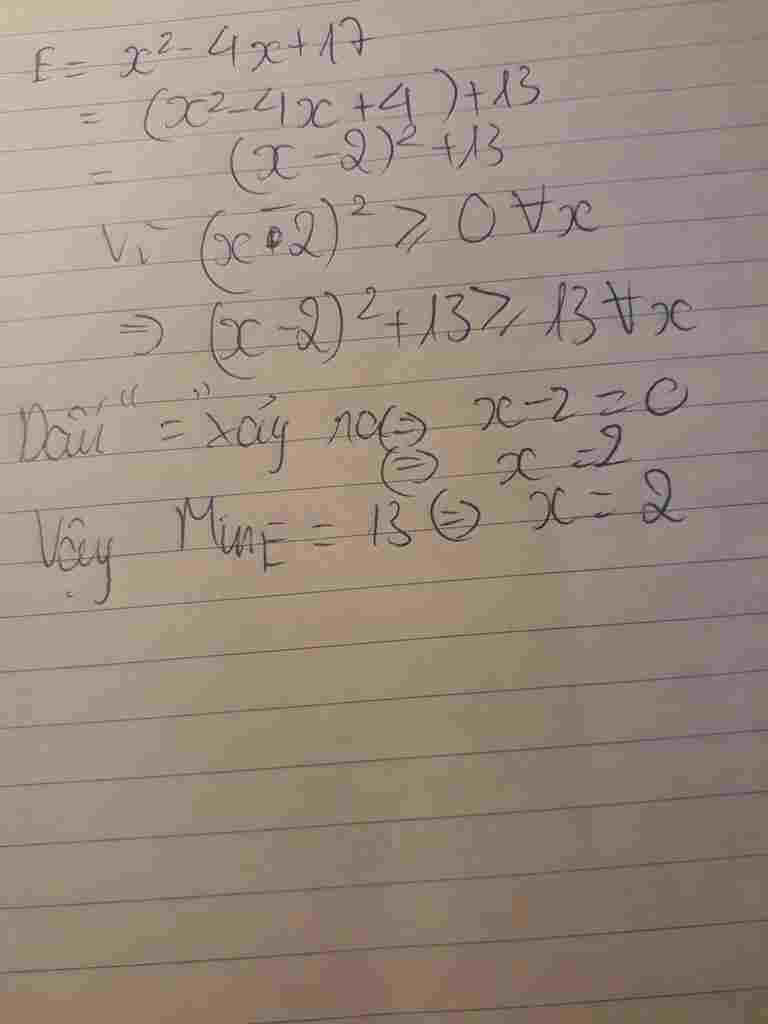 E = x² - 4x + 17
= (x² - 4x + 4) + 13
= (x - 2)² + 13
Vì (x - 2)² ⩾ 0 ∀x
⇒ (x - 2)² + 13 ⩾ 13 ∀x
Dấu "=" xảy ra ⇔ x - 2 = 0
⇔ x = 2
Vậy Min_E = 13 ⇔ x = 2